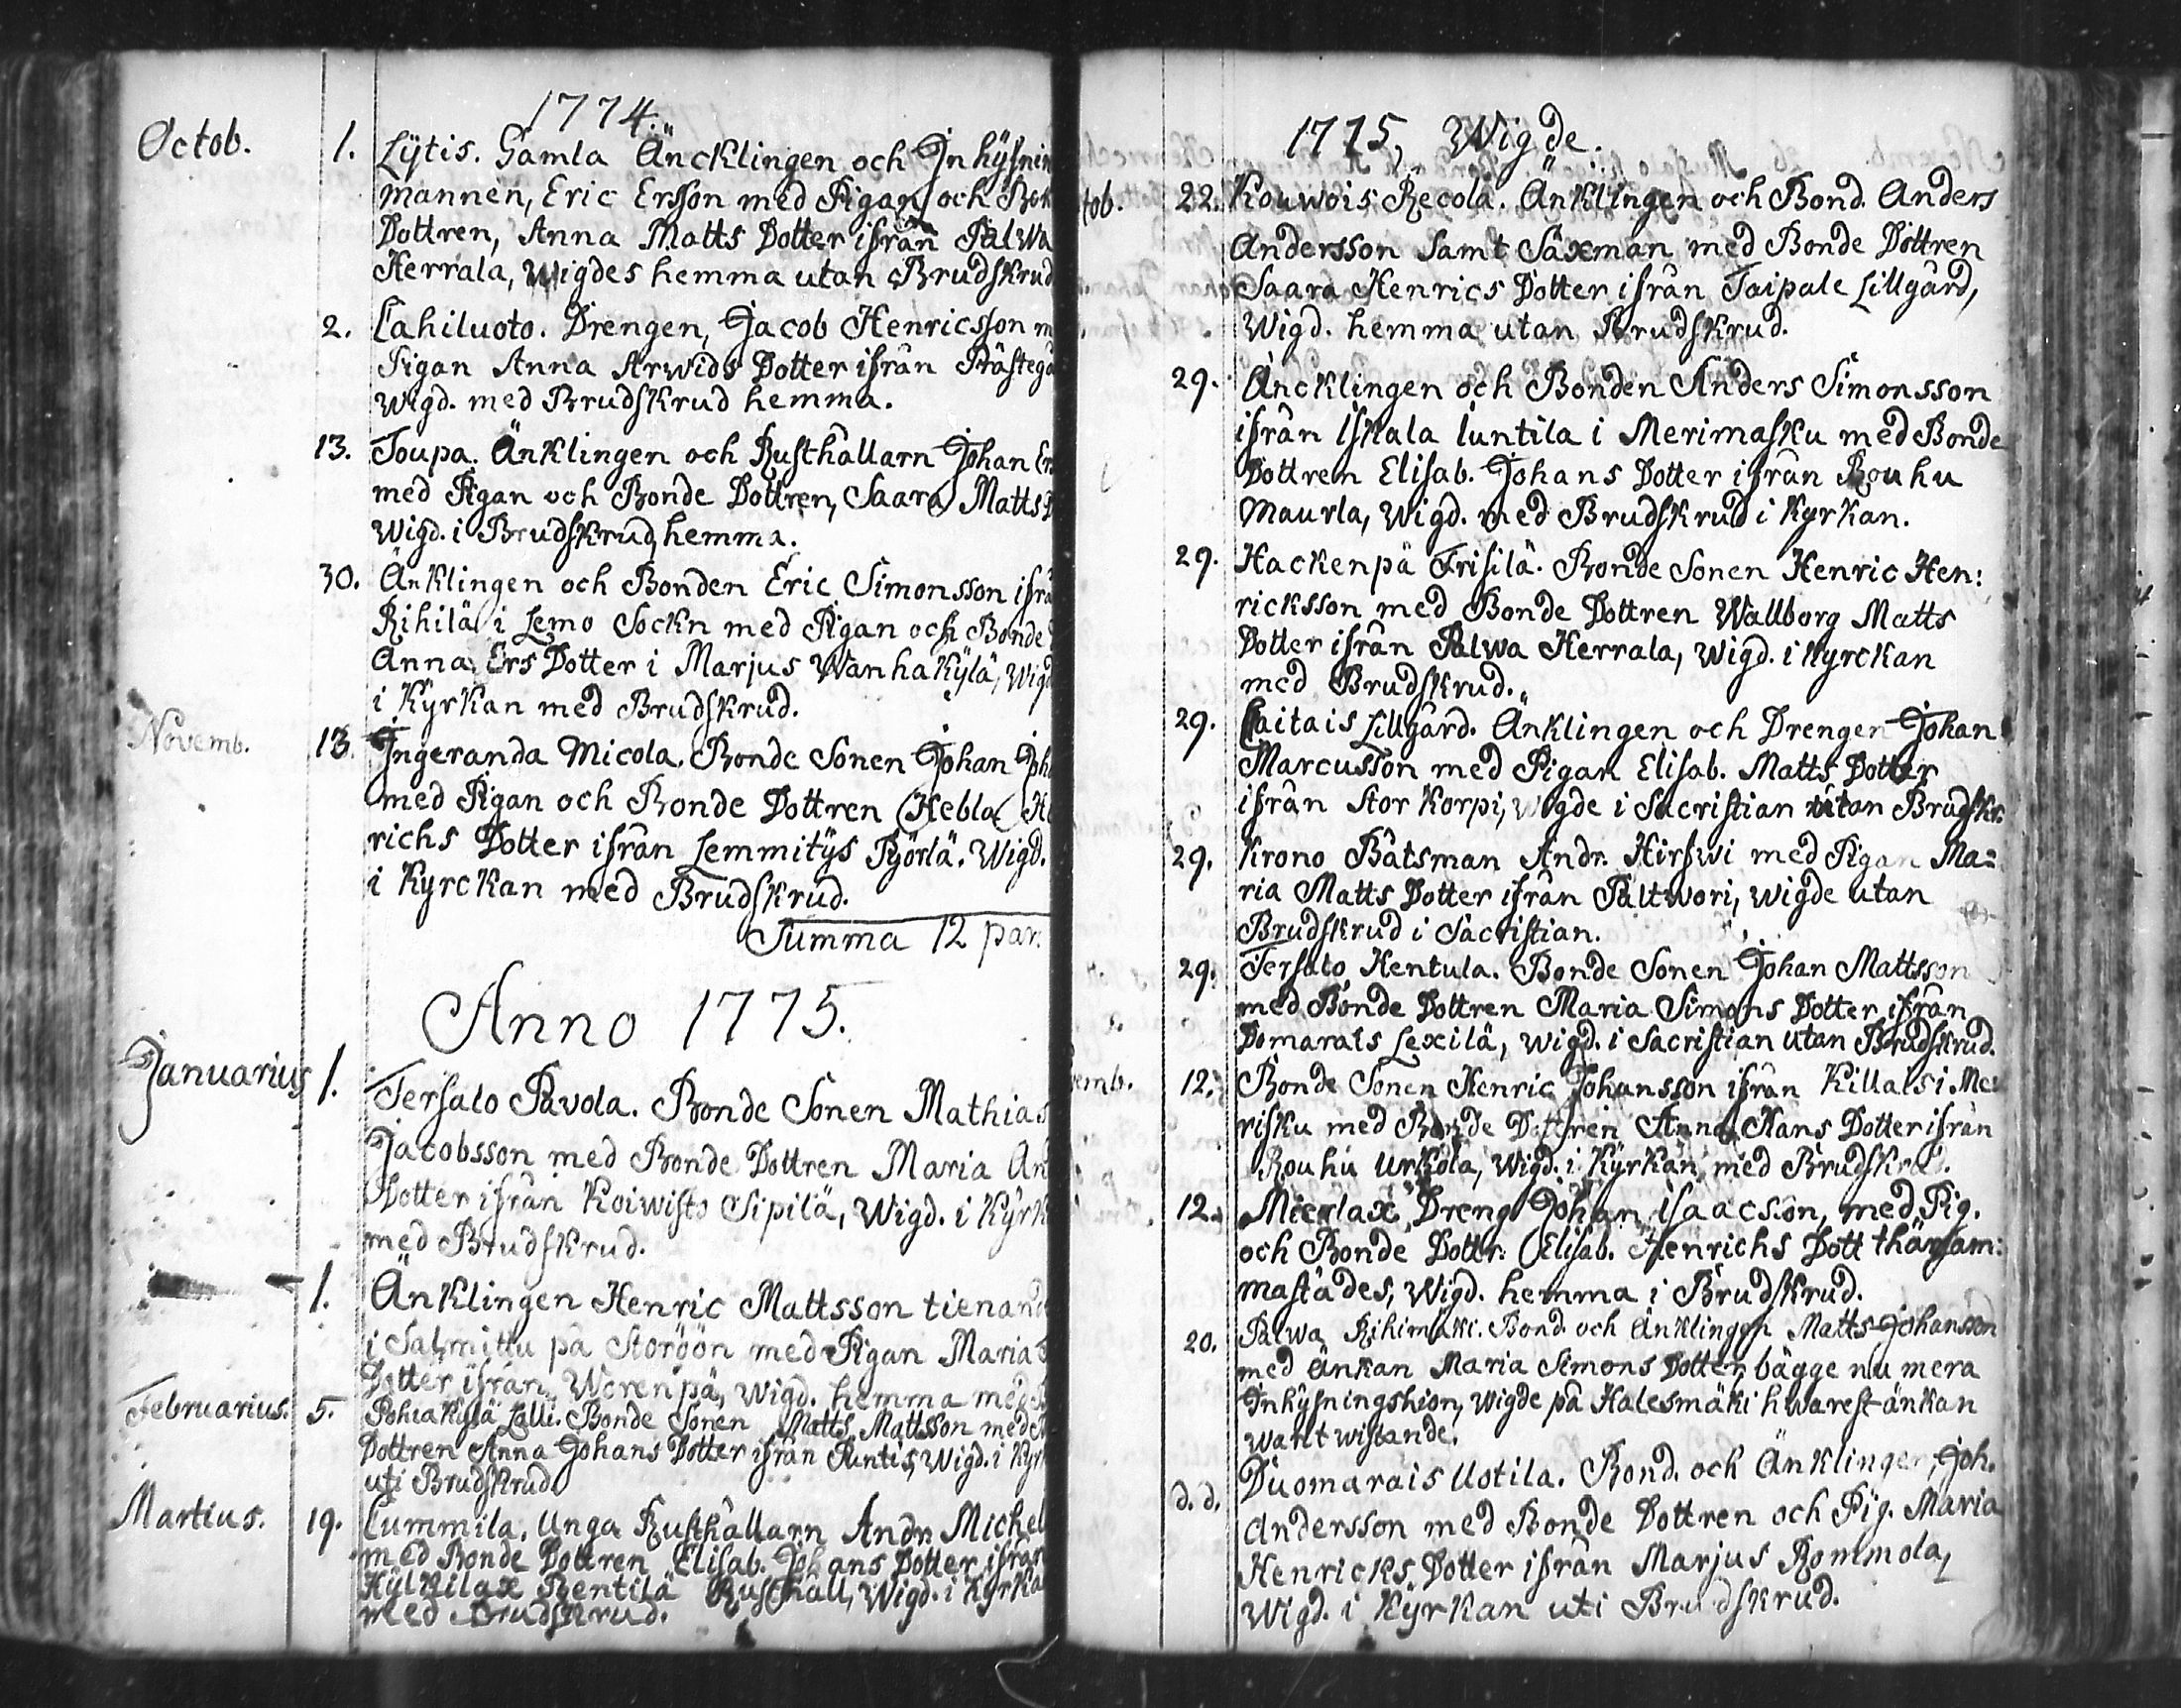 1774.
Octob. 1. Lytis. Gamla Äncklingen och Inhÿsnin
mannen, Eric Ersson med Pigan och Bon
Dottren, Anna Matts Dotter ifrån Palwa
Herrala, Wigdes hemma utan Brudskrud
2. Lahiluoto. Drengen, Jacob Henricsson m
Pigan Anna Arwids Dotter ifrån Prästegå
Wigd. med Brudskrud hemma.
13. Toupa. Änklingen och Rusthållarn Johan Er
med Pigan och Bonde Dottren, Saara Matts D
Wigd. i Brudskrud hemma.
30. Änklingen och Bonden Eric Simonsson ifrå
Rihilä i Lemo Sockn med Pigan och Bonde
Anna Ers Dotter i Marjus Wanhakÿlä, Wigd
i Kÿrkan med Brudskrud.
Novemb. 13. Ingeranda Micola. Bonde Sonen Johan Joh
med Pigan och Bonde Dottren Hebla He
richs Dotter ifrån Lemmitÿs Pÿörlä. Wigd.
i Kyrckan med Brudskrud.
Summa 12 par.
Anno 1775.
Januarius 1. Tersalo Pavola. Bonde Sonen Mathias
Jacobsson med Bonde Dottren Maria An
Dotter ifrån Koiwisto Sipilä, Wigd. i Kÿrk
med Brudskrud.
1. Änklingen Henric Mattsson tienand
i Salmittu på Storöön med Pigan Maria
Dotter ifrån Werenpä, wigd. hemma med
Februarius. 5. Pohiakylä Lalli. Bonde Sonen Matts Mattsson med
Dottren Anna Johans Dotter ifrån Runtis, Wigd. i Kyr
uti Brudskrud
Martius. 19. Lummila. Unga Rusthållarn Andr. Michel
med Bonde Dottren Elisab. Johans Dotter ifrån
Kÿlkilax Pentilä Rusthåll, Wigd. i Kyrka
med Brudskrud.
1775, Wigde.
tob. 22. Kouwois Recola. Änklingen och Bond. Anders
Andersson Samt Säxman med Bonde Dottren
Saara Henrics Dotter ifrån Taipale Lillgård,
Wigd. hemma utan Brudskrud.
29. Äncklingen och Bonden Anders Simonsson
ifrån Iskala Luntila i Merimasku med Bonde
Dottren Elisab. Johans Dotter ifrån Rouhu
Maurla, Wigd. med Brudskrud i Kyrkan.
29. Hackenpä Frisilä. Bonde Sonen Henric Hen:
ricksson med Bonde Dottren Wallborg Matts
Dotter ifrån Palwa Herrala, Wigd. i Kyrckan
med Brudskrud.
29. Laitais Lillgård. Änklingen och Drengen Johan
Marcusson med Pigan Elisab. Matts Dotter
ifrån Stor Korpi, wigde i Sacristian utan Brudskr.
29. Krono Båtsman Andr. Hirswi med Pigan Ma=
ria Matts Dotter ifrån Paltwori, wigde utan
Brudskrud i Sacristian.
29. Tersalo Hentula. Bonde Sonen Johan Mattsson
med Bonde Dottren Maria Simons Dotter ifrån
Domarais Lexilä, wigd. i Sacristian utan Brudskrud.
emb. 12. Bonde Sonen Henric Johansson ifrån Killais i Me:
risku med Bonde Dottren Anna Hans Dotter ifrån
Rouhu Urkola, Wigd. i Kÿrkan, med Brudskrud.
12. Mierlax, Dreng Johan Isaacson, med Pig.
och Bonde Dottr. Elisab. Henrichs Dott thärsam:
mastädes, Wigd. hemma i Brudskrud.
20. Palwa Rihimäki. Bond. och Änklingen Matts Johansson
med Änkan Maria Simons Dotter, bägge nu mera
Inhÿsningshion, wigde på Halesmäki hwarest änkan
warit wistande.
d. d. Duomarais Uotila. Bond. och Änklingen, Joh.
Andersson med Bonde Dottren och Pig. Maria
Henricks Dotter ifrån Marjus Rommola,
Wigd. i Kÿrkan uti Brudskrud.